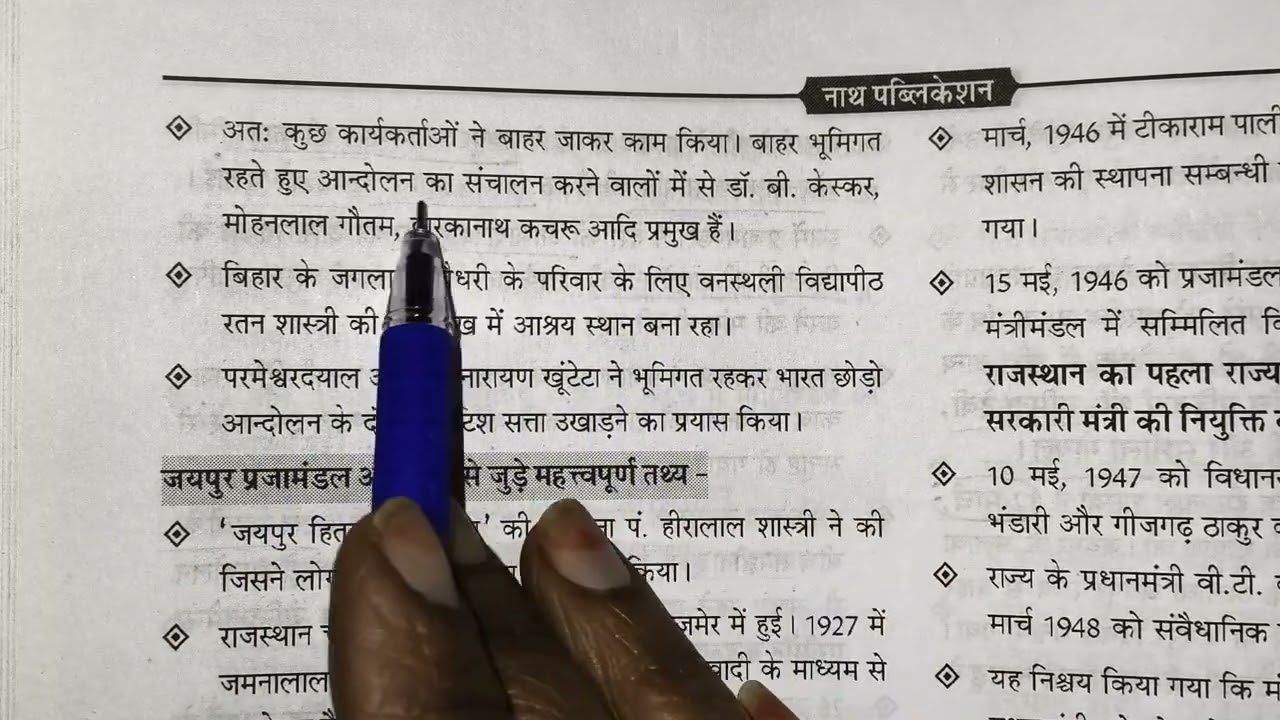 नाथ पब्लिकेशन
अतः कुछ कार्यकर्ताओं ने बाहर जाकर काम किया। बाहर भूमिगत
रहते हुए आन्दोलन का संचालन करने वालों में से डॉ. बी. केस्कर,
मोहनलाल गौतम, द्वारकानाथ कचरू आदि प्रमुख हैं।
बिहार के के परिवार के लिए वनस्थली विद्यापीठ
रतन शास्त्री की में आश्रय स्थान बना रहा।
परमेश्वरदयाल खूंटेटा ने भूमिगत रहकर भारत छोड़ो
आन्दोलन के सत्ता उखाड़ने का प्रयास किया।
जयपुर प्रजामंडल से जुड़े महत्त्वपूर्ण तथ्य –
'जयपुर की पं. हीरालाल शास्त्री ने की
जिसने किया।
राजस्थान में हुई। 1927 में
जमनालाल के माध्यम से
मार्च, 1946 में टीकाराम
शासन की स्थापना सम्बन्धी
गया।
15 मई, 1946 को
मंत्रीमंडल में सम्मिलित
राजस्थान का पहला राज्य
सरकारी मंत्री की नियुक्ति
10 मई, 1947 को
भंडारी और गीजगढ़ ठाकुर
राज्य के प्रधानमंत्री वी.टी.
मार्च 1948 को संवैधानिक
यह निश्चय किया गया कि